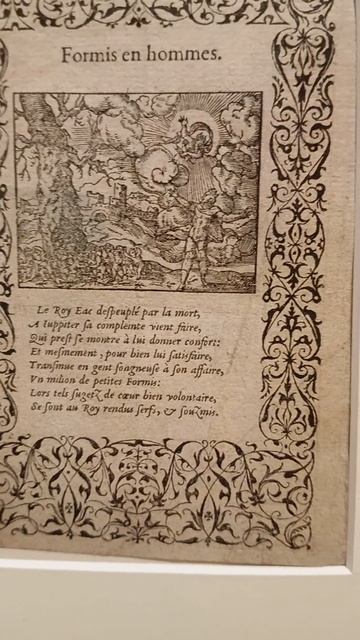 Formis en hommes.
Le Roy Eac despeuplé par la mort,
A Iuppiter sa compleinte vient faire,
Qui prest se montre à lui donner confort:
Et mesmement, pour bien lui satisfaire,
Transmue en gent songneuse à son affaire,
Vn milion de petites Formis:
Lors tels sugetz de cœur bien volontaire,
Se sont au Roy rendus serfs, & souzmis.